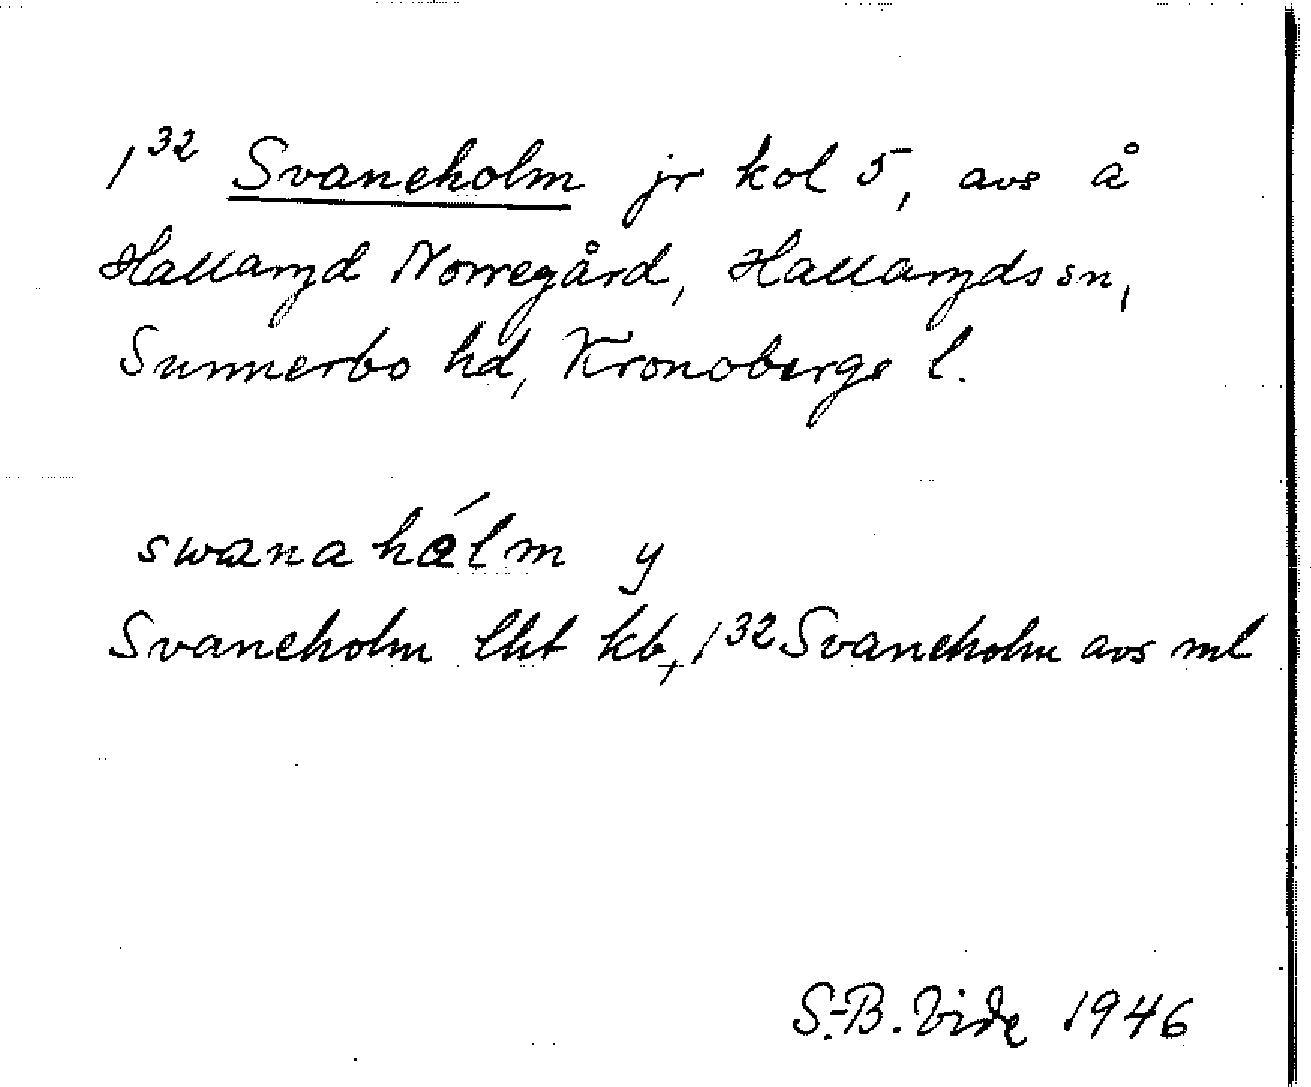 1³² Svaneholm jr kol 5, avs å
Hallaryd Norregård, Hallaryds sn,
Sunnerbo hd, Kronobergs l.
swanahálm y
Svaneholm lht kb, 1³² Svaneholm avs ml
S.-B. Vide 1946